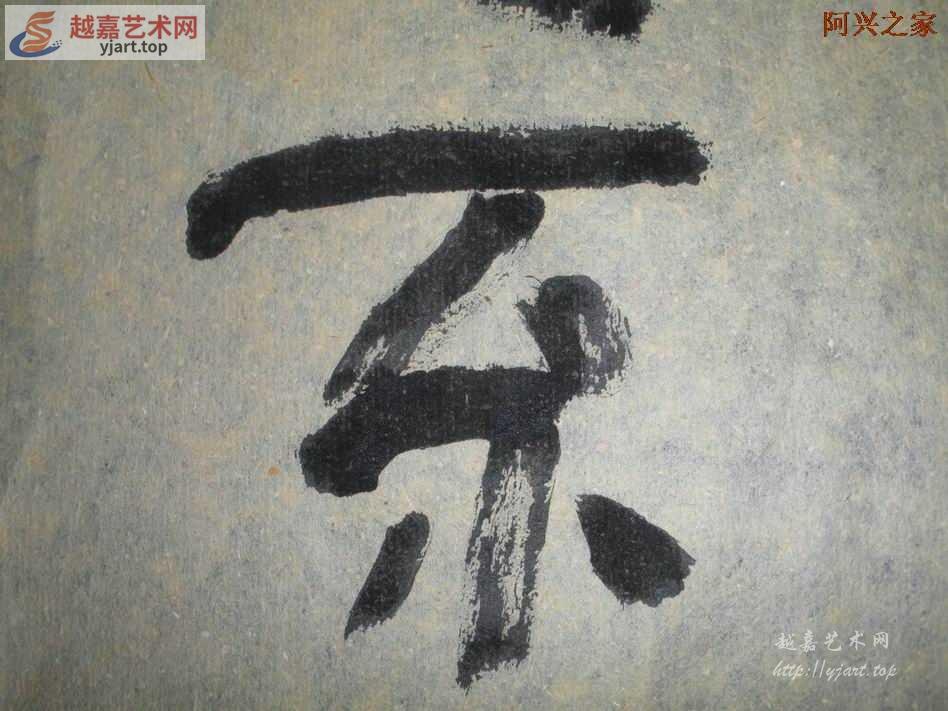 越嘉艺术网
yjart.top
阿兴之家
系
越嘉艺术网
http://yjart.top